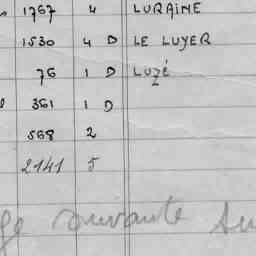 1767 4 LURAINE
1530 4 D LE LUYER
76 1 D LUZÉ
361 1 D
568 2
2141 5
suivante